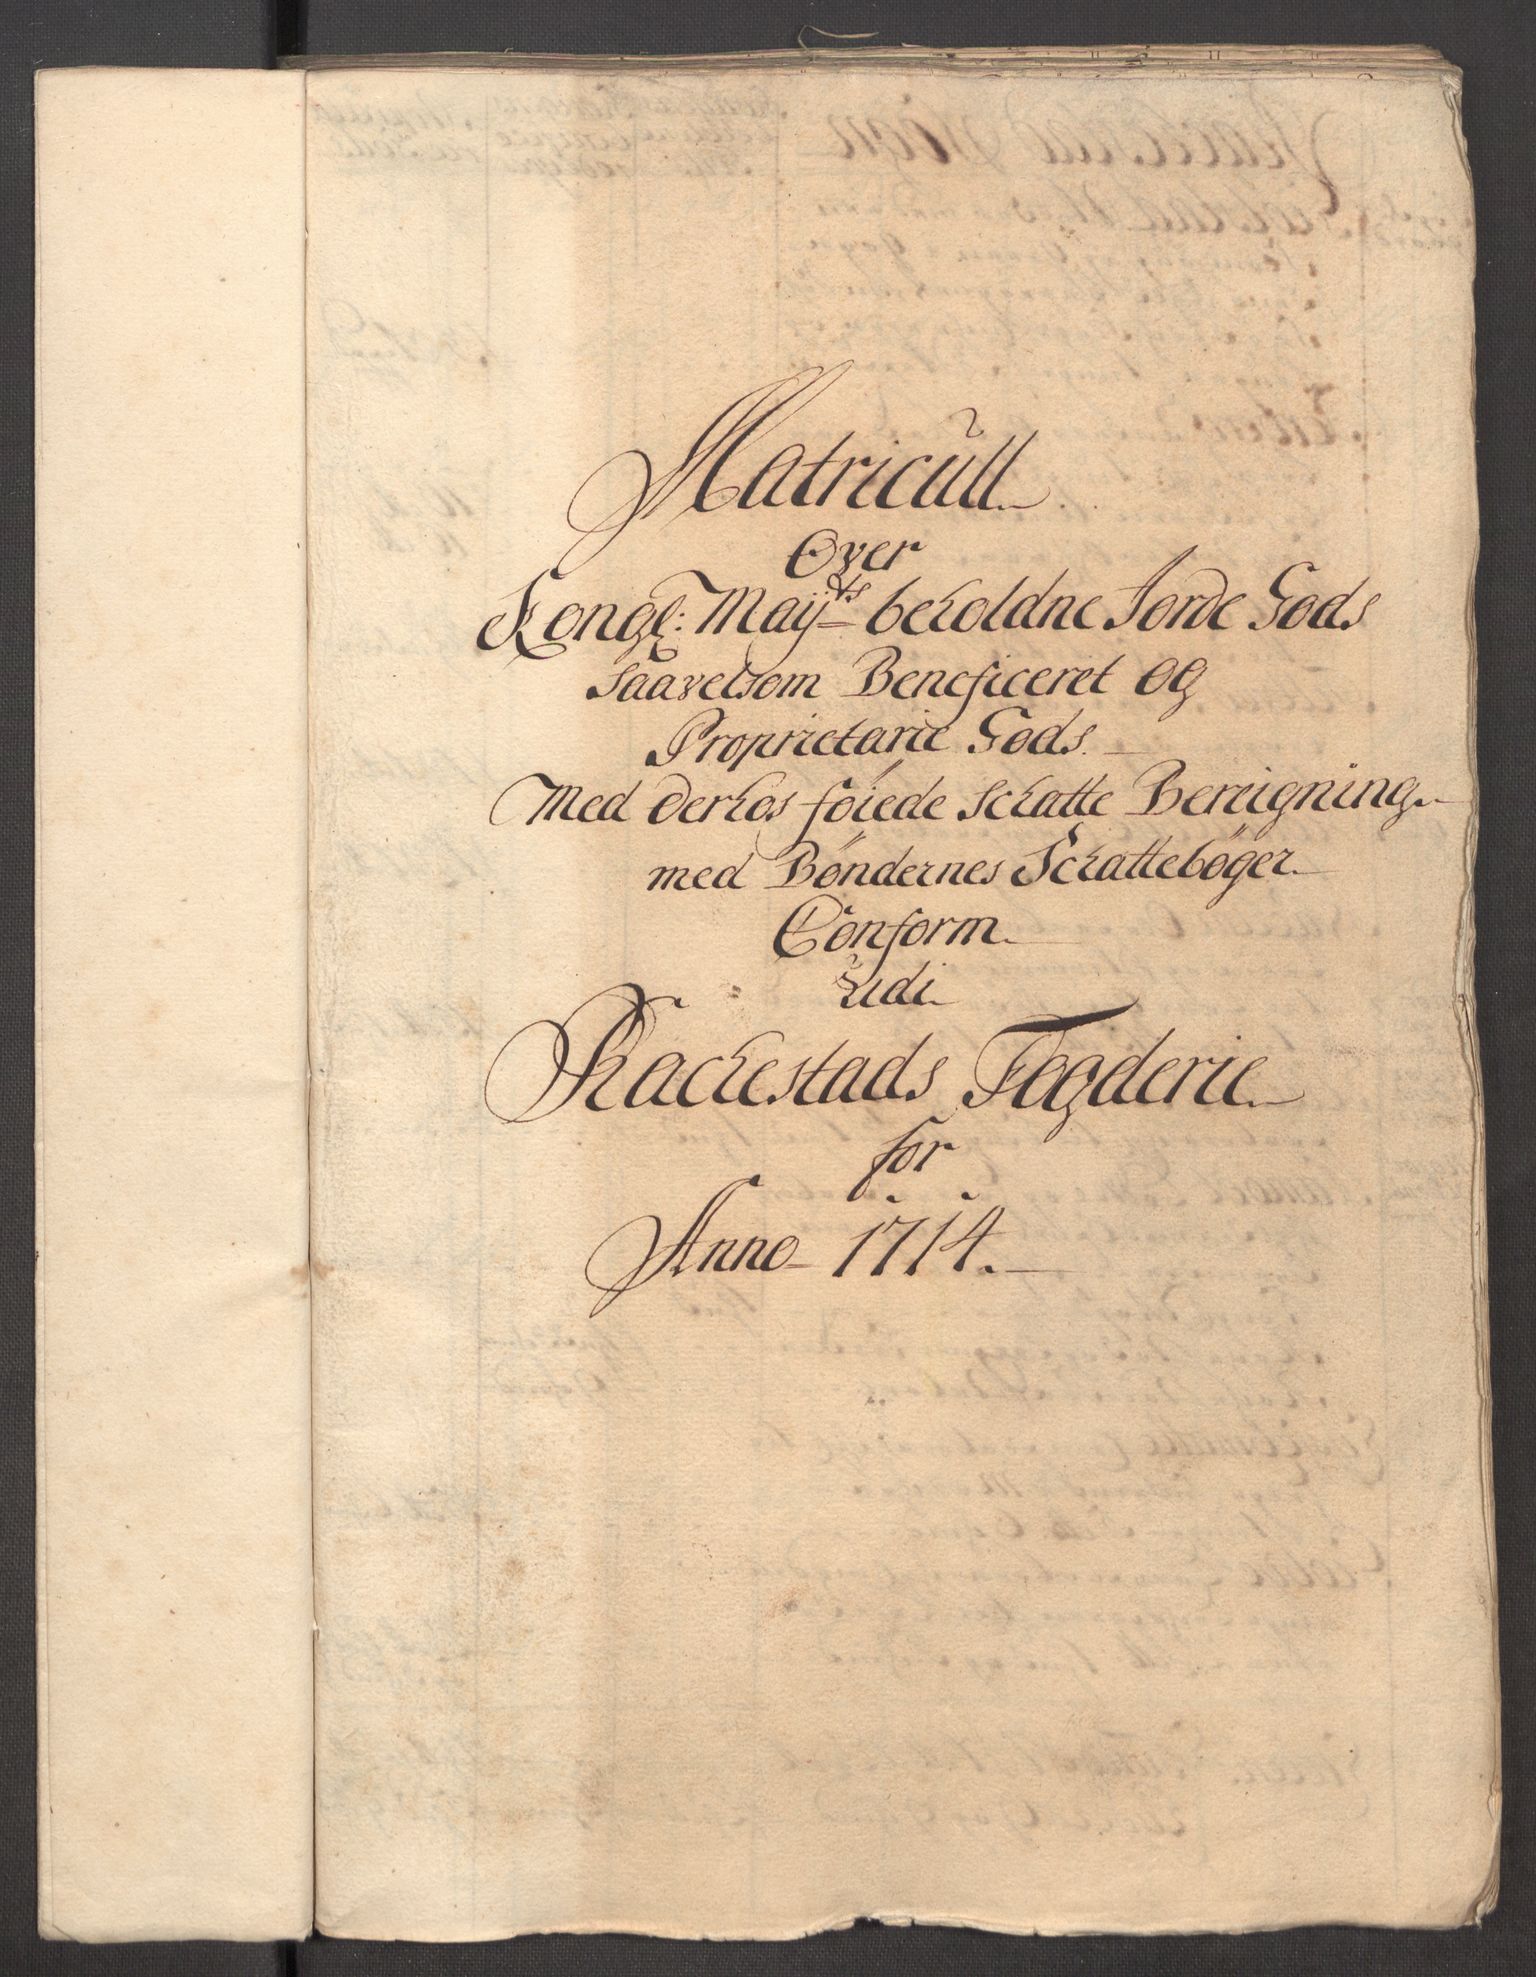 Matricüll
Over
Kongl: Maÿts beholdne Jorde Gods
saavelsom Beneficeret og
Proprietarie Gods.
Med derhos föiede schatte Bereigning
med Bøndernes Schattebøger
Conform
udi
Rackestads Fogderie
for
Anno 1714.